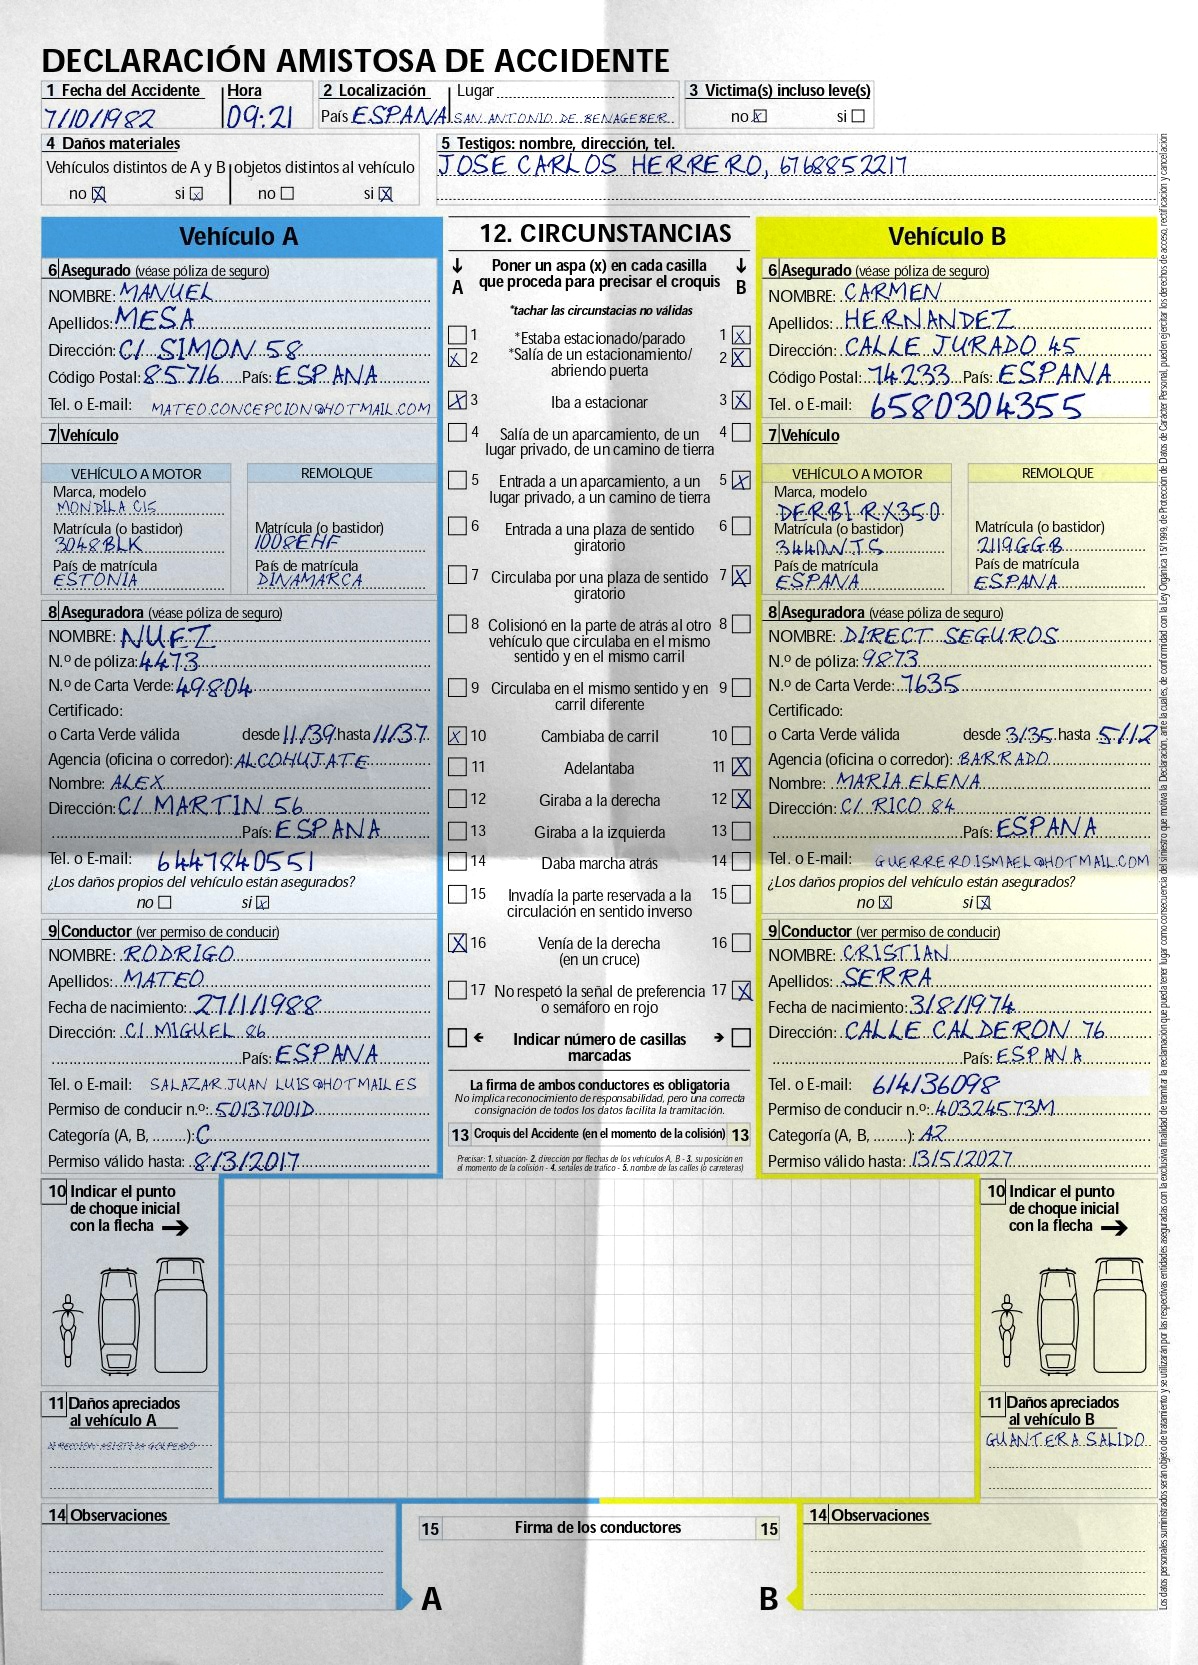 DECLARACIÓN AMISTOSA DE ACCIDENTE
1 Fecha del Accidente Hora 2 Localización Lugar 3 Victima(s) incluso leve(s)
7/10/1982 09:21 País ESPAÑA SAN ANTONIO DE BENAGEBER no X si
4 Daños materiales
Vehículos distintos de A y B objetos distintos al vehículo
no X si X no si X
5 Testigos: nombre, dirección, tel.
JOSE CARLOS HERRERO, 6768852217
Vehículo A
6 Asegurado (véase póliza de seguro)
NOMBRE: MANUEL
Apellidos: MESA
Dirección: C/ SIMON 58
Código Postal: 85716 País: ESPAÑA
Tel. o E-mail: MATEO.CONCEPCION@HOTMAIL.COM
7 Vehículo
VEHÍCULO A MOTOR REMOLQUE
Marca, modelo
MONDILA C15
Matrícula (o bastidor) Matrícula (o bastidor)
3048BLK 1008EHF
País de matrícula País de matrícula
ESTONIA DINAMARCA
8 Aseguradora (véase póliza de seguro)
NOMBRE: NUEZ
N.º de póliza: 4473
N.º de Carta Verde: 49804
Certificado:
o Carta Verde válida desde 11/39 hasta 11/37
Agencia (oficina o corredor): ALCOHUJATE
Nombre: ALEX
Dirección: C/ MARTIN 56
País: ESPAÑA
Tel. o E-mail: 6447840551
¿Los daños propios del vehículo están asegurados?
no si X
9 Conductor (ver permiso de conducir)
NOMBRE: RODRIGO
Apellidos: MATEO
Fecha de nacimiento: 27/1/1988
Dirección: C/ MIGUEL 86
País: ESPAÑA
Tel. o E-mail: SALAZAR.JUAN LUIS@HOTMAIL.ES
Permiso de conducir n.º: 50137001D
Categoría (A, B, ........): C
Permiso válido hasta: 8/3/2017
12. CIRCUNSTANCIAS
A Poner un aspa (x) en cada casilla que proceda para precisar el croquis B
*tachar las circunstacias no válidas
1 *Estaba estacionado/parado 1 X
X 2 *Salía de un estacionamiento/ 2 X
abriendo puerta
X 3 Iba a estacionar 3 X
4 Salía de un aparcamiento, de un 4
lugar privado, de un camino de tierra
5 Entrada a un aparcamiento, a un 5 X
lugar privado, a un camino de tierra
6 Entrada a una plaza de sentido 6
giratorio
7 Circulaba por una plaza de sentido 7 X
giratorio
8 Colisionó en la parte de atrás al otro 8
vehículo que circulaba en el mismo
sentido y en el mismo carril
9 Circulaba en el mismo sentido y en 9
carril diferente
X 10 Cambiaba de carril 10
11 Adelantaba 11 X
12 Giraba a la derecha 12 X
13 Giraba a la izquierda 13
14 Daba marcha atrás 14
15 Invadía la parte reservada a la 15
circulación en sentido inverso
X 16 Venía de la derecha 16
(en un cruce)
17 No respetó la señal de preferencia 17 X
o semáforo en rojo
Indicar número de casillas
marcadas
La firma de ambos conductores es obligatoria
No implica reconocimiento de responsabilidad, pero una correcta
consignación de todos los datos facilita la tramitación.
13 Croquis del Accidente (en el momento de la colisión) 13
Precisar: 1. situación- 2. dirección por flechas de los vehículos A, B - 3. su posición en
el momento de la colisión - 4. señales de tráfico - 5. nombre de las calles (o carreteras)
Vehículo B
6 Asegurado (véase póliza de seguro)
NOMBRE: CARMEN
Apellidos: HERNANDEZ
Dirección: CALLE JURADO 45
Código Postal: 74233 País: ESPAÑA
Tel. o E-mail: 6580304355
7 Vehículo
VEHÍCULO A MOTOR REMOLQUE
Marca, modelo
DERBI RX350
Matrícula (o bastidor) Matrícula (o bastidor)
3440WTS 2119GGB
País de matrícula País de matrícula
ESPAÑA ESPAÑA
8 Aseguradora (véase póliza de seguro)
NOMBRE: DIRECT SEGUROS
N.º de póliza: 9873
N.º de Carta Verde: 7635
Certificado:
o Carta Verde válida desde 3/35 hasta 5/12
Agencia (oficina o corredor): BARRADO
Nombre: MARIA ELENA
Dirección: C/ RICO 84
País: ESPAÑA
Tel. o E-mail: GUERRERO.ISMAEL@HOTMAIL.COM
¿Los daños propios del vehículo están asegurados?
no X si X
9 Conductor (ver permiso de conducir)
NOMBRE: CRISTIAN
Apellidos: SERRA
Fecha de nacimiento: 3/8/1974
Dirección: CALLE CALDERON 76
País: ESPAÑA
Tel. o E-mail: 614136098
Permiso de conducir n.º: 40324573M
Categoría (A, B, ........): A2
Permiso válido hasta: 13/5/2027
10 Indicar el punto
de choque inicial
con la flecha
11 Daños apreciados
al vehículo A
10 Indicar el punto
de choque inicial
con la flecha
11 Daños apreciados
al vehículo B
GUANTERA SALIDO
14 Observaciones
15 Firma de los conductores 15
A B
14 Observaciones
Los datos personales suministrados serán objeto de tratamiento y se utilizarán por las respectivas entidades aseguradas con la exclusiva finalidad de tramitar la reclamación que pueda tener lugar como consecuencia del siniestro que motiva la Declaración, ante la cuales, de conformidad con la Ley Orgánica 15/1999, de Protección de Datos de Carácter Personal, pueden ejercitar los derechos de acceso, rectificación y cancelación